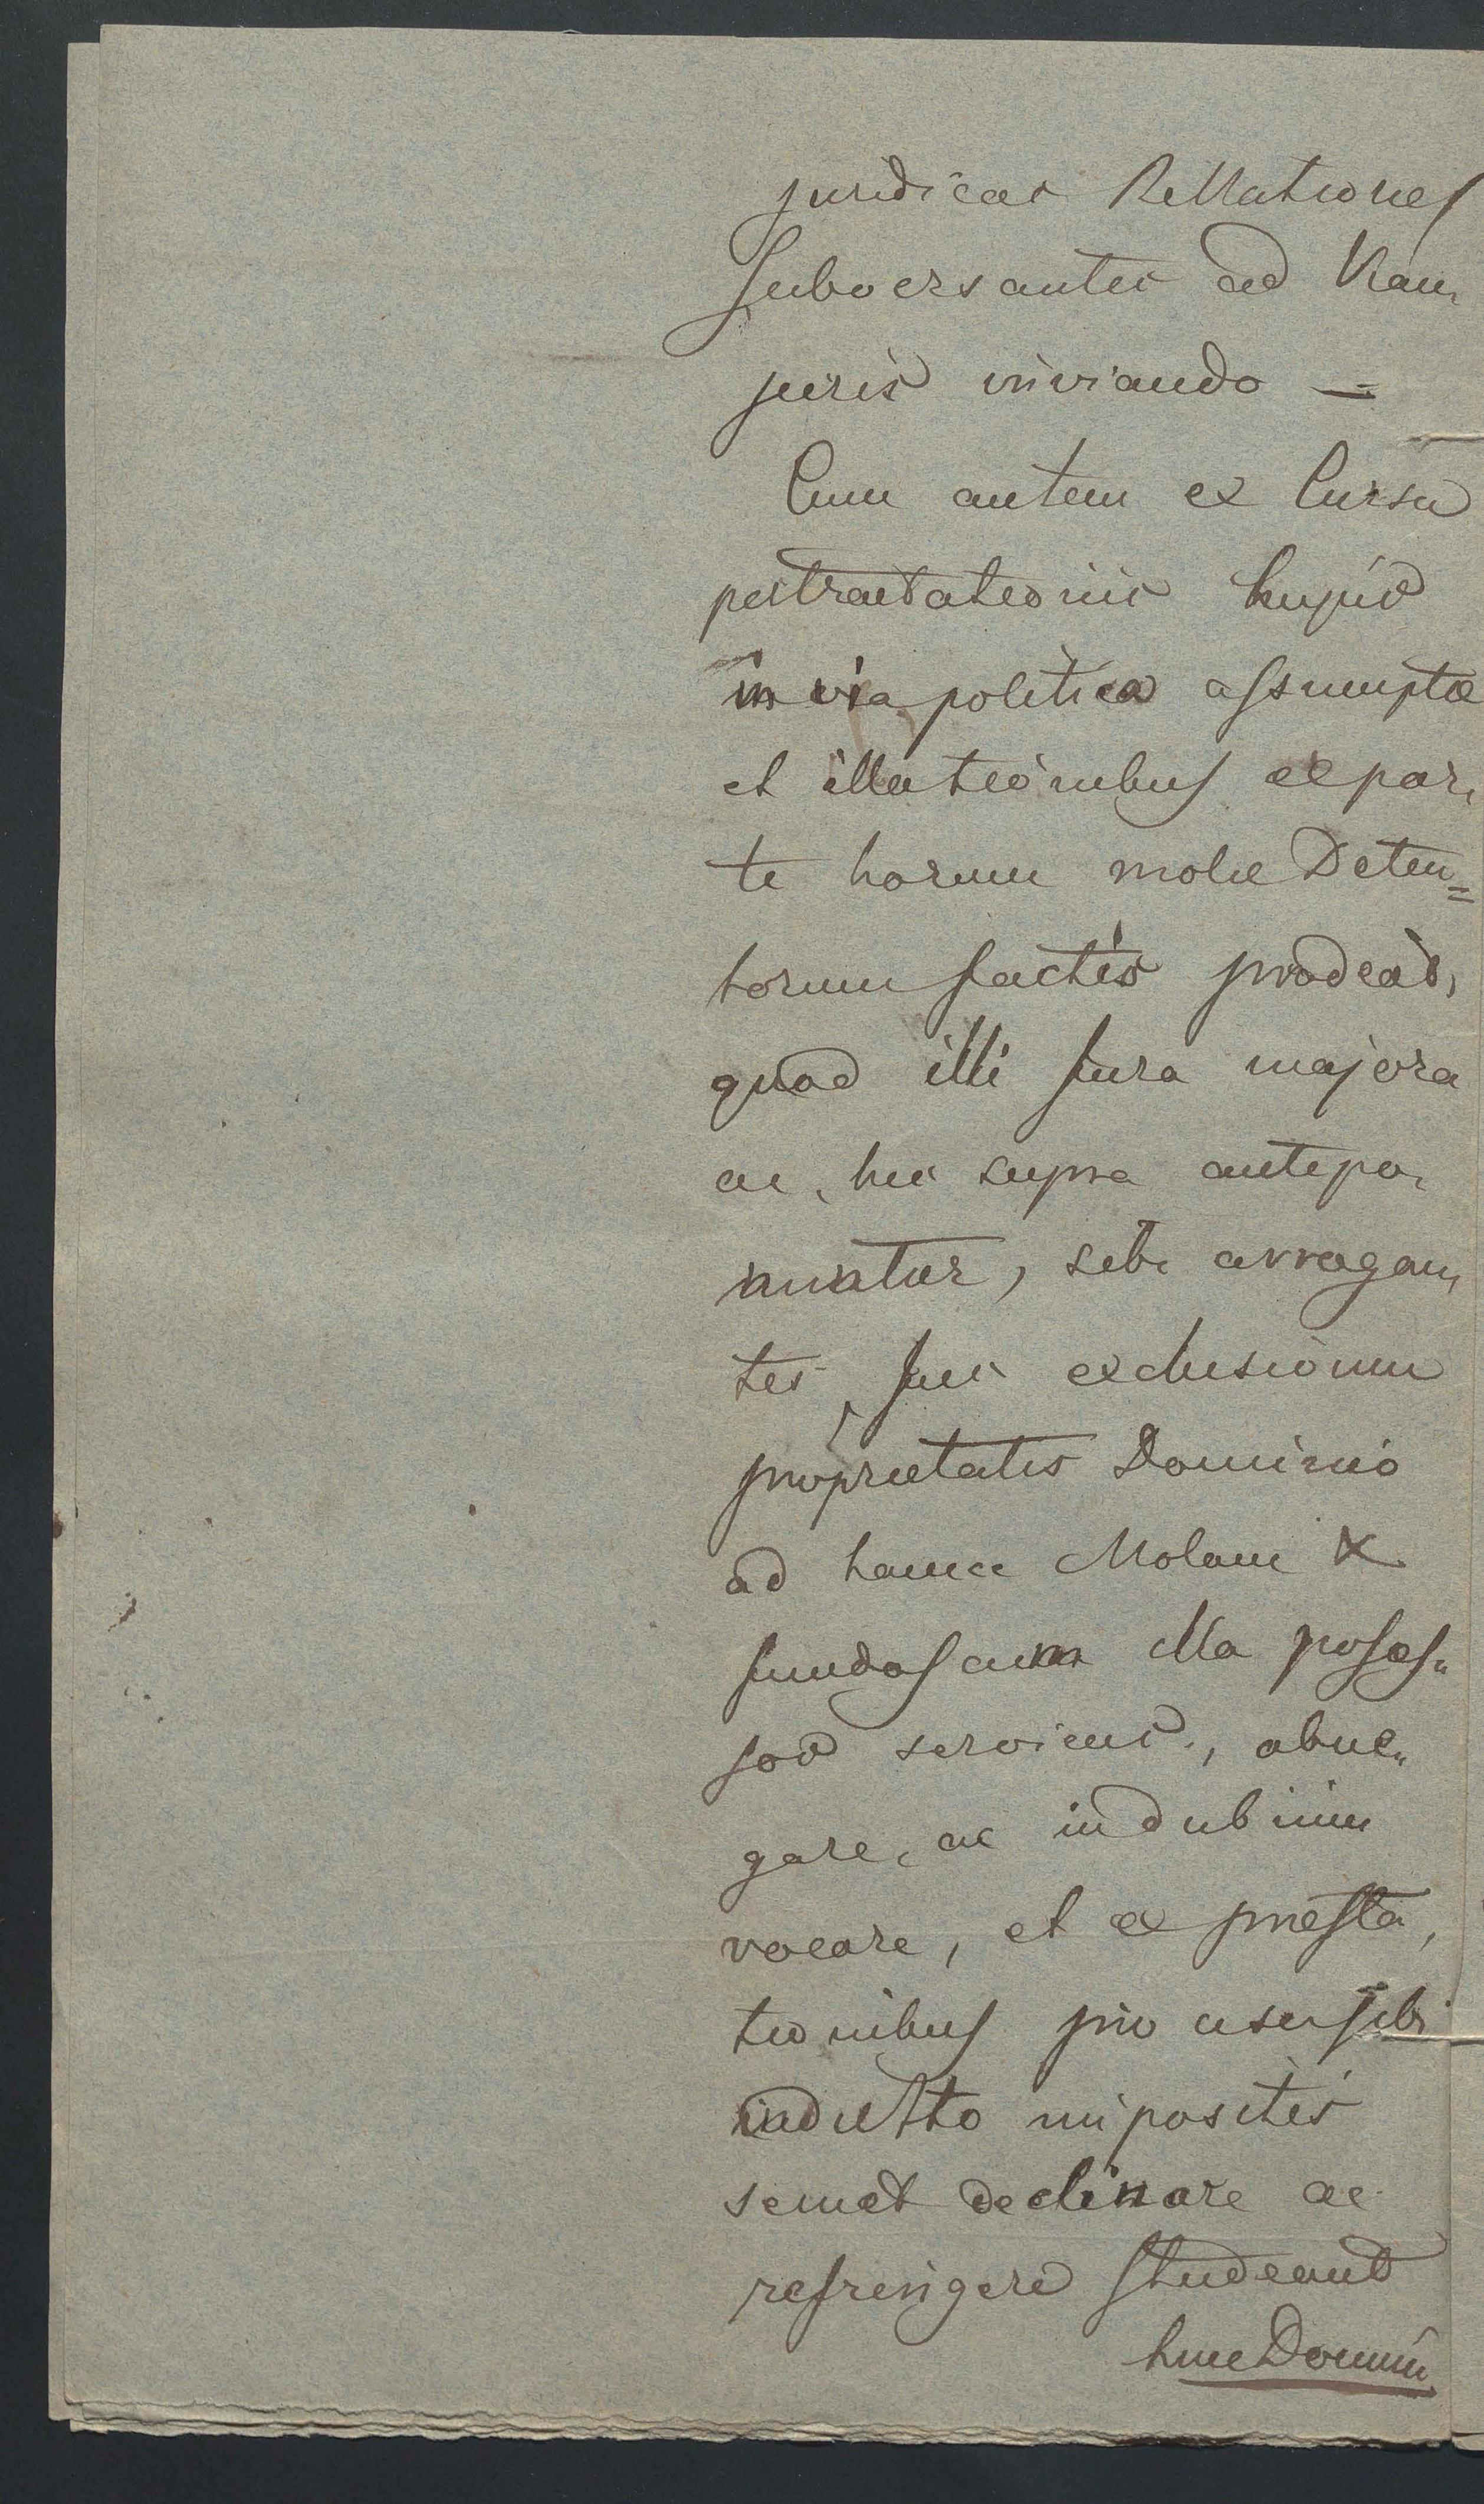 juridicas Rellationes
subversantes ad Viam
juris inviando —
Cum autem ex Cursu
pertractationis hujus
in via politica assumptæ
et illationibus ex par,
te horum molæ Deten=
torum factis prodeat,
quod illi Jura majora
ac, hic supra antepo,
nuntur, sibi arrogan,
tes Jus exclusivum
proprietatis Dominio
ad hance Molam &
fundos cum illa posses„
sos serviens, abne„
gare, ac in dubium
vocare, et ex præsta,
tionibus pro usu sibi
indulto impositis
semet declinare ac
refringere studeant
hinc Domin